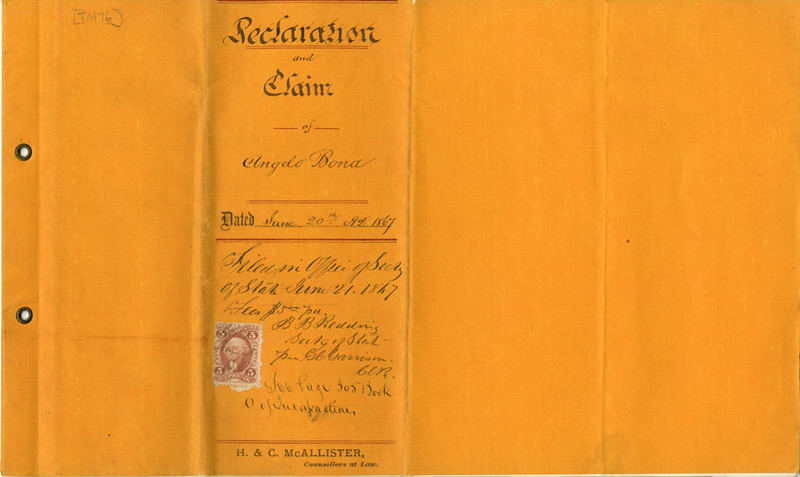 [TM76]
Declaration
and
Claim
of
Angelo Bona
Dated June 20th A.D. 1867
Filed in Office of Secty
of State June 21. 1867
Fees $5 00 pd
B B Redding
Secty of State
per C C Garrison.
Clk.
See Page 305 Book
of
5 5
5 5
H. & C. McALLISTER,
Counsellors at Law.